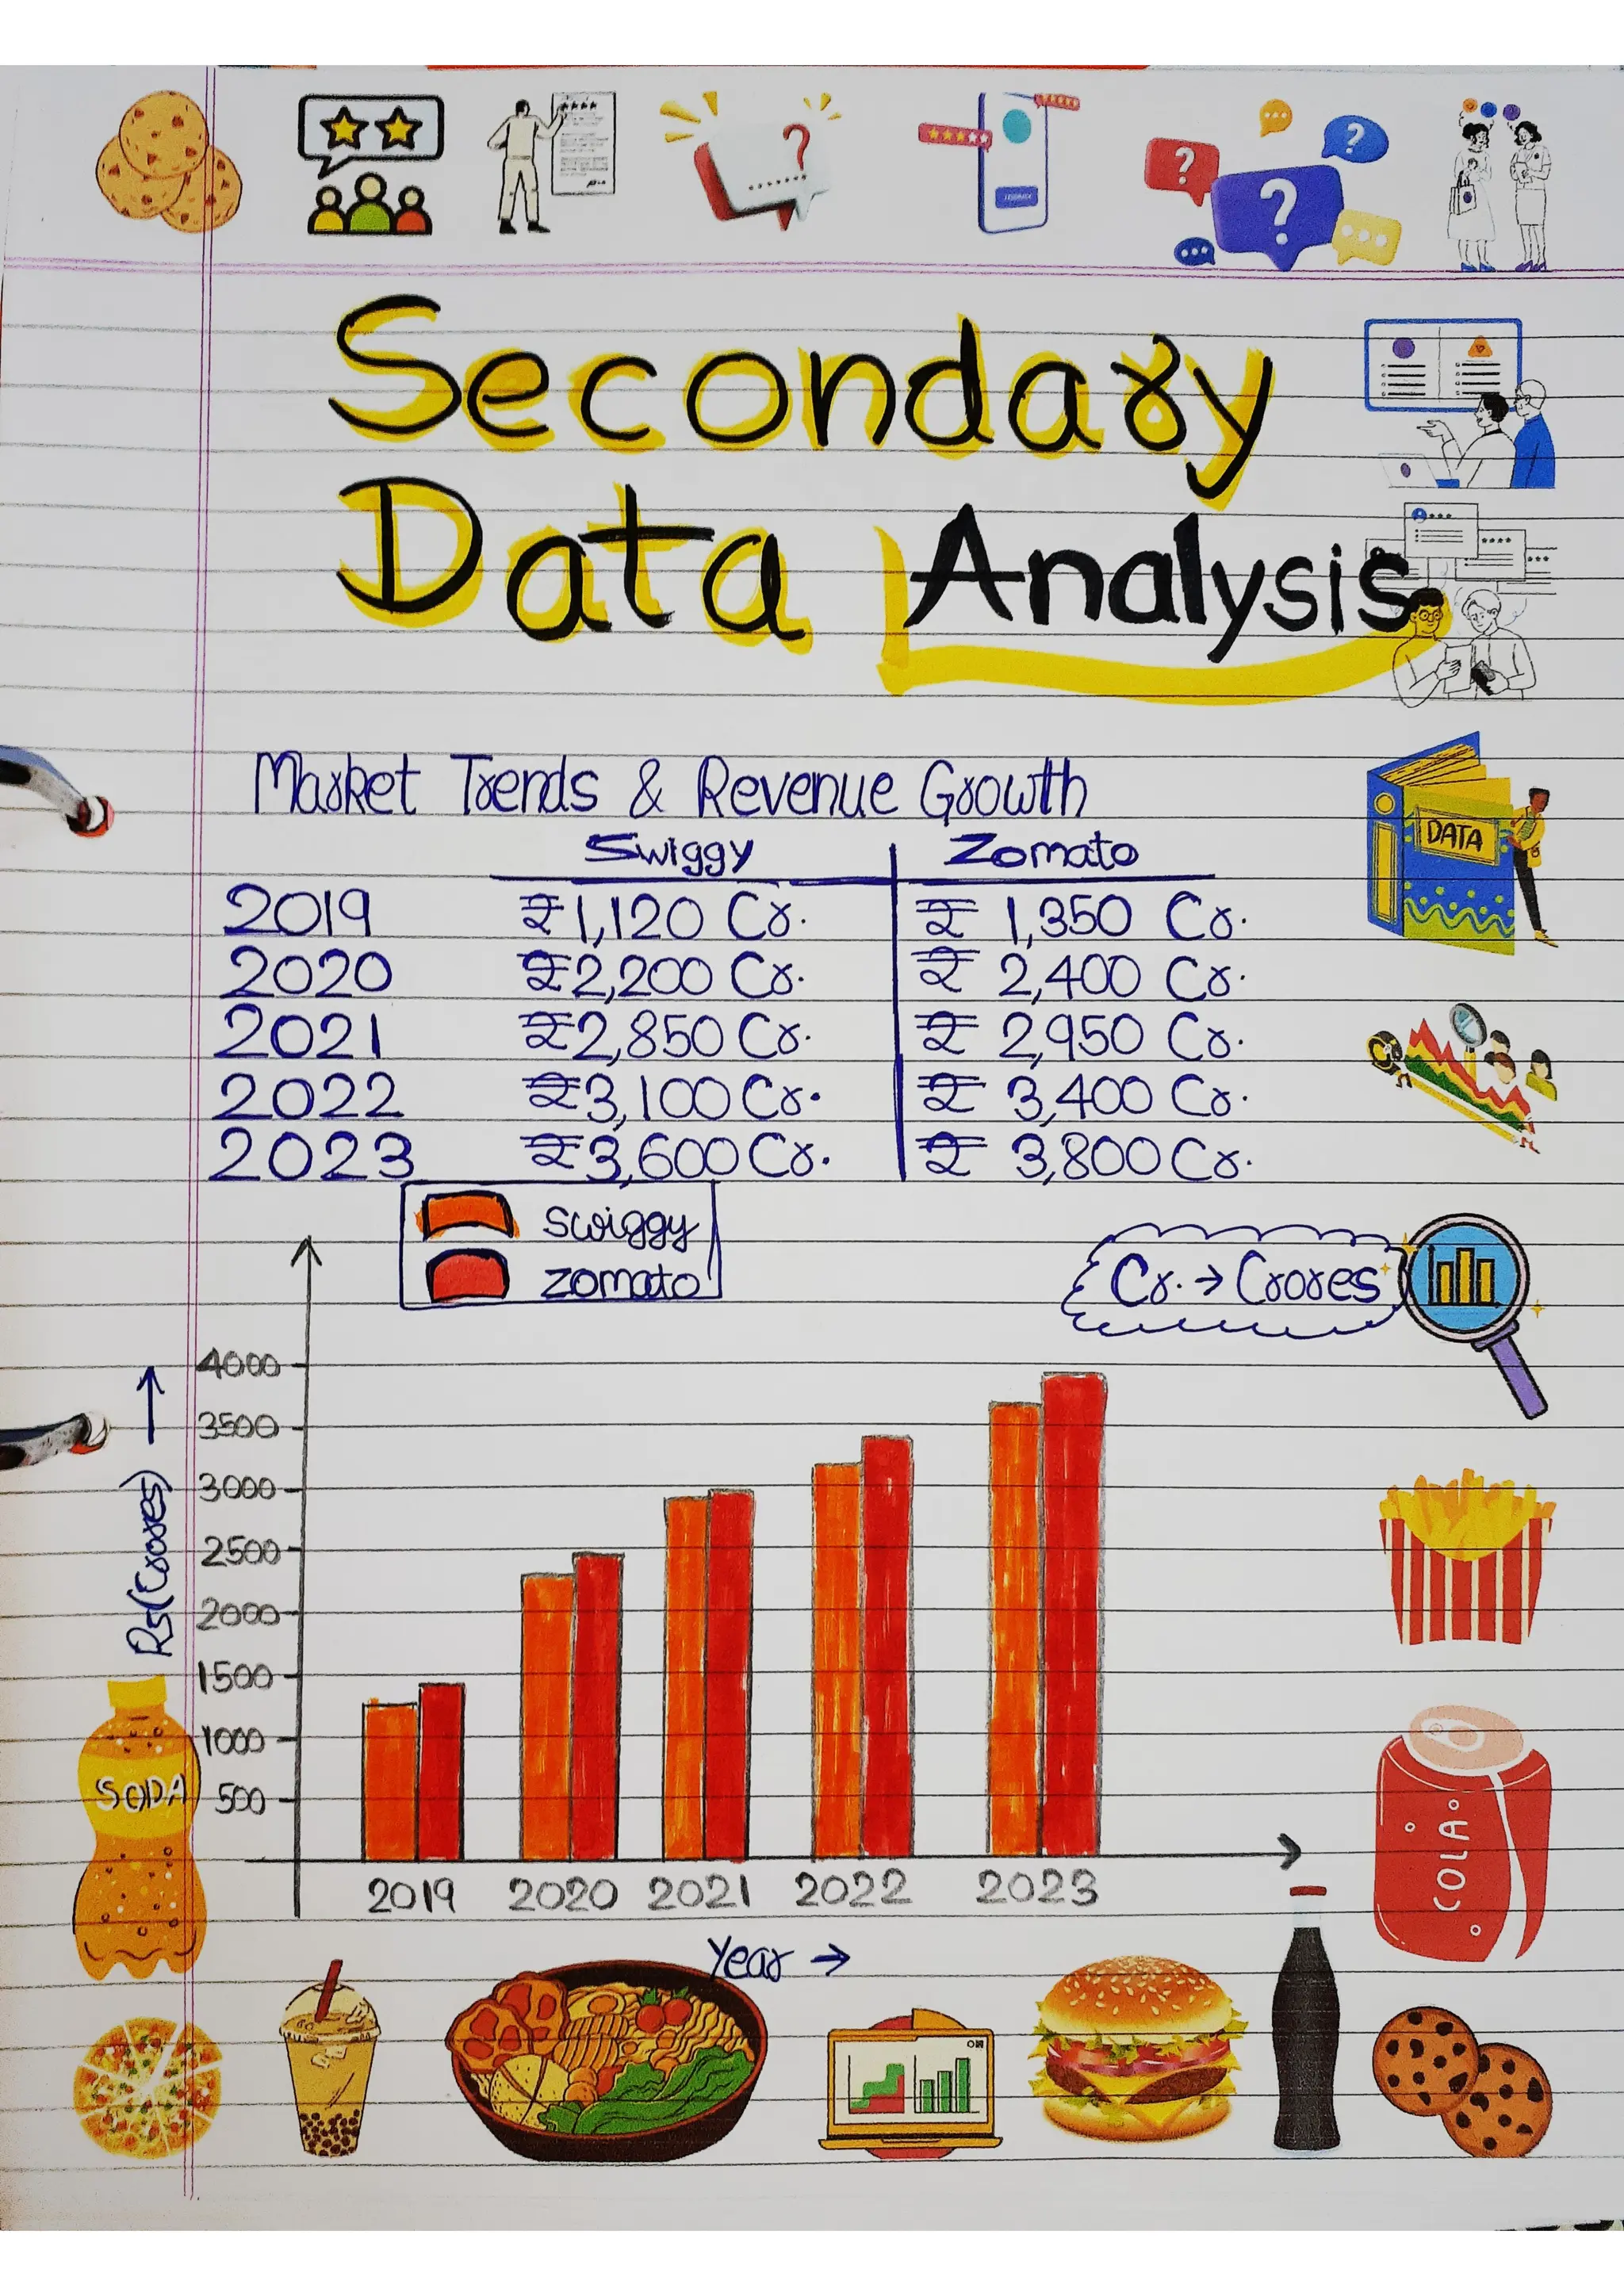 Secondary
Data Analysis
Market Trends & Revenue Growth
Swiggy Zomato
2019 ₹1,120 Cr. ₹ 1,350 Cr.
2020 ₹2,200 Cr. ₹ 2,400 Cr.
2021 ₹2,850 Cr. ₹ 2,950 Cr.
2022 ₹3,100 Cr. ₹ 3,400 Cr.
2023 ₹3,600 Cr. ₹ 3,800 Cr.
DATA
swiggy
zomato
Cr. → Crores
Rs(Crores) →
4000
3500
3000
2500
2000
1500
1000
500
2019 2020 2021 2022 2023
Year →
SODA
COLA